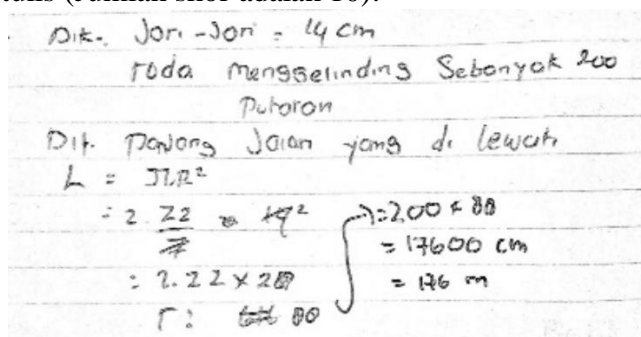 Dik. Jari-Jari = 14 cm
roda menggelinding Sebanyak 200
Putaran
Dit. Panjang Jalan yang di lewati
L = π R²
= 2 22/7 14²
= 2.22 x 2
r = 88
= 200 x 88
= 17600 cm
= 176 m